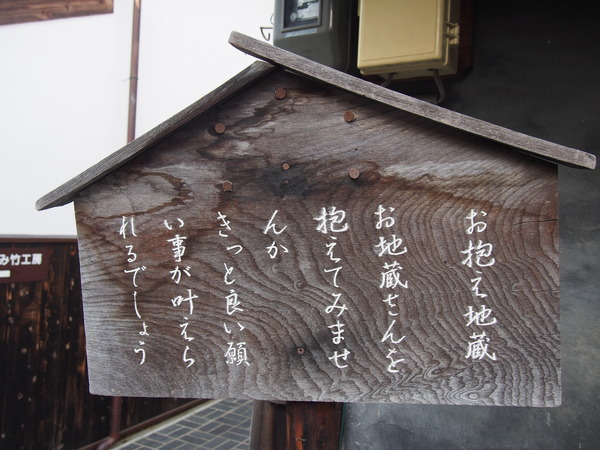 お抱え地蔵
お地蔵さんを
抱えてみませ
んか
きっと良い願
い事が叶えら
れるでしょう
み竹工房